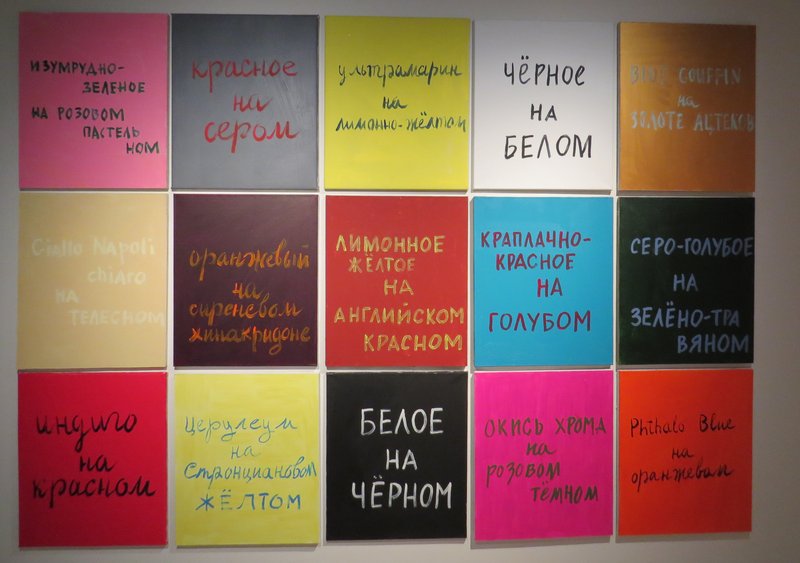 ИЗУМРУДНО-
ЗЕЛЕНОЕ
НА РОЗОВОМ
ПАСТЕЛЬ
НОМ
красное
на
сером
ультрамарин
на
лимонно-жёлтом
ЧЁРНОЕ
НА
БЕЛОМ
BLUE COUFFIN
на
ЗОЛОТЕ АЦТЕКОВ
Giallo Napoli
chiaro
НА
ТЕЛЕСНОМ
оранжевый
на
сиреневом
хинакридоне
ЛИМОННОЕ
ЖЁЛТОЕ
НА
АНГЛИЙСКОМ
КРАСНОМ
КРАПЛАЧНО-
КРАСНОЕ
НА
ГОЛУБОМ
СЕРО-ГОЛУБОЕ
НА
ЗЕЛЁНО-ТРА
ВЯНОМ
индиго
на
красном
Церулеум
на
Стронциановом
ЖЁЛТОМ
БЕЛОЕ
НА
ЧЁРНОМ
ОКИСЬ ХРОМА
на
розовом
тёмном
Phthalo Blue
на
оранжевом